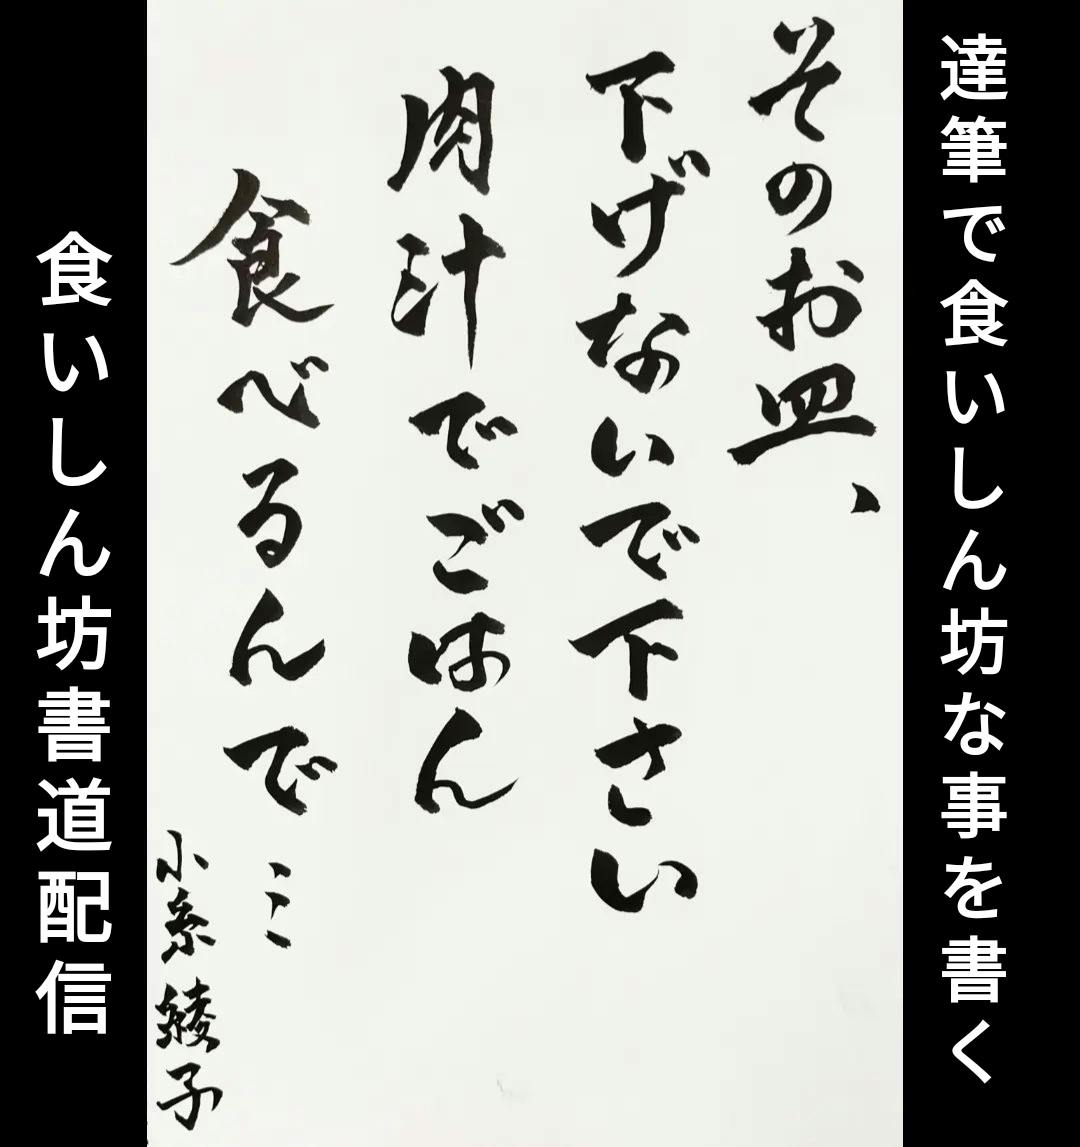 達筆で食いしん坊な事を書く
そのお皿、
下げないで下さい
肉汁でごはん
食べるんで…
小糸綾子
食いしん坊書道配信